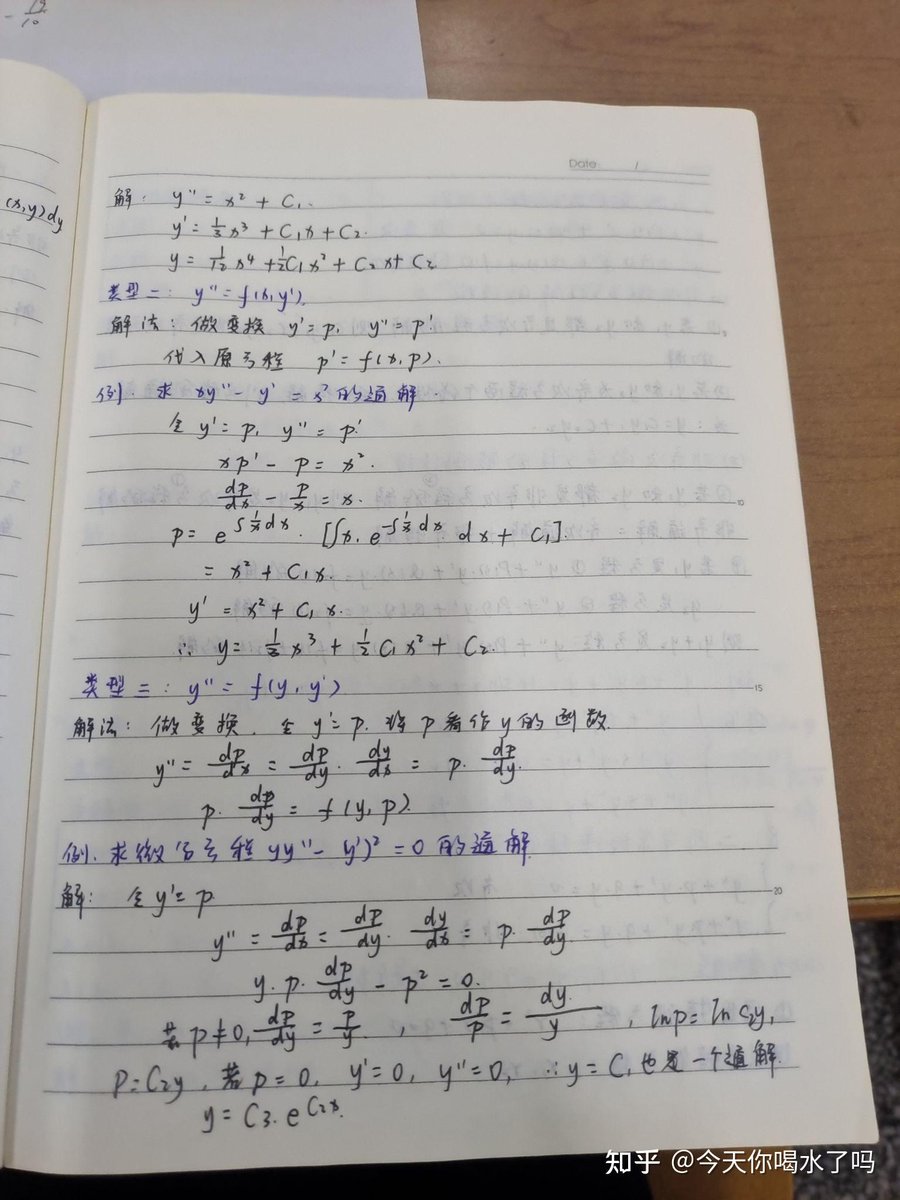 - 19/10
(x,y)dy
Date /
解: y'' = x² + C₁.
y' = 1/3 x³ + C₁x + C₂.
y = 1/12 x⁴ + 1/2 C₁x² + C₂x + C₃
类型二: y'' = f(x,y').
解法: 做变换 y' = p, y'' = p'.
代入原方程 p' = f(x,p).
例. 求 xy'' - y' = x² 的通解.
令 y' = p, y'' = p'
xp' - p = x².
dp/dx - p/x = x.
10
p = e^{∫1/x dx} · [∫x. e^{-∫1/x dx} dx + C₁].
= x² + C₁x.
y' = x² + C₁x.
∴ y = 1/3 x³ + 1/2 C₁x² + C₂.
类型三: y'' = f(y, y')
15
解法: 做变换, 令 y' = p. 将 p 看作 y 的函数.
y'' = dp/dx = dp/dy · dy/dx = p · dp/dy.
p · dp/dy = f(y, p).
例. 求微分方程 yy'' - y')² = 0 的通解
解: 令 y' = p
20
y'' = dp/dx = dp/dy · dy/dx = p · dp/dy.
y · p · dp/dy - p² = 0.
若 p ≠ 0, dp/dy = p/y , dp/p = dy/y , lnp = ln C₂y,
p = C₂y , 若 p = 0, y' = 0, y'' = 0, ∴ y = C, 也是一个通解.
y = C₃ · e^{C₂x}
知乎 @今天你喝水了吗